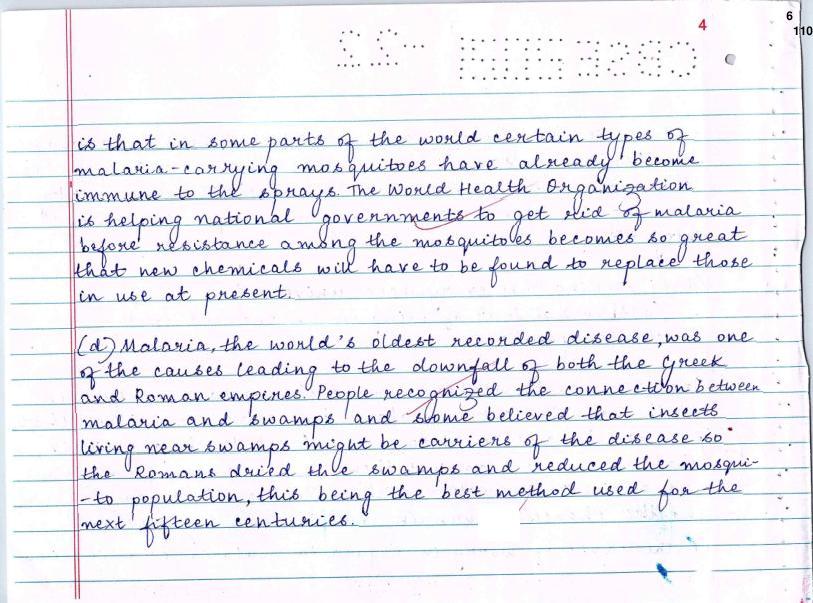 4
6
110
is that in some parts of the world certain types of
malaria-carrying mosquitoes have already become
immune to the sprays. The World Health Organization
is helping national governments to get rid of malaria
before resistance among the mosquitoes becomes so great
that new chemicals will have to be found to replace those
in use at present.
(d) Malaria, the world's oldest recorded disease, was one
of the causes leading to the downfall of both the Greek
and Roman empires. People recognized the connection between
malaria and swamps and some believed that insects
living near swamps might be carriers of the disease so
the Romans dried the swamps and reduced the mosqui-
-to population, this being the best method used for the
next fifteen centuries.